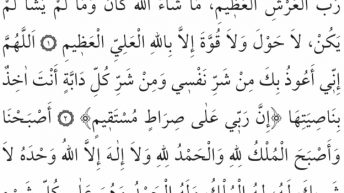 رَبُّ الْعَرْشِ الْعَظِيمِ، مَا شَاءَ اللهُ كَانَ وَمَا لَمْ يَشَأْ لَمْ
يَكُنْ، لَا حَوْلَ وَلَا قُوَّةَ إِلَّا بِاللهِ الْعَلِيِّ الْعَظِيمِ ﴿١﴾ اَللَّهُمَّ
إِنِّي أَعُوذُ بِكَ مِنْ شَرِّ نَفْسِي وَمِنْ شَرِّ كُلِّ دَابَّةٍ أَنْتَ اٰخِذٌ
بِنَاصِيَتِهَا ﴿إِنَّ رَبِّي عَلَى صِرَاطٍ مُسْتَقِيمٍ﴾ ﴿٢﴾ أَصْبَحْنَا
وَأَصْبَحَ الْمُلْكُ لِلهِ وَالْحَمْدُ لِلهِ وَلَا إِلٰهَ إِلَّا اللهُ وَحْدَهُ لَا
شَرِيكَ لَهُ لَهُ الْمُلْكُ وَلَهُ الْحَمْدُ وَهُوَ عَلَى كُلِّ شَيْءٍ